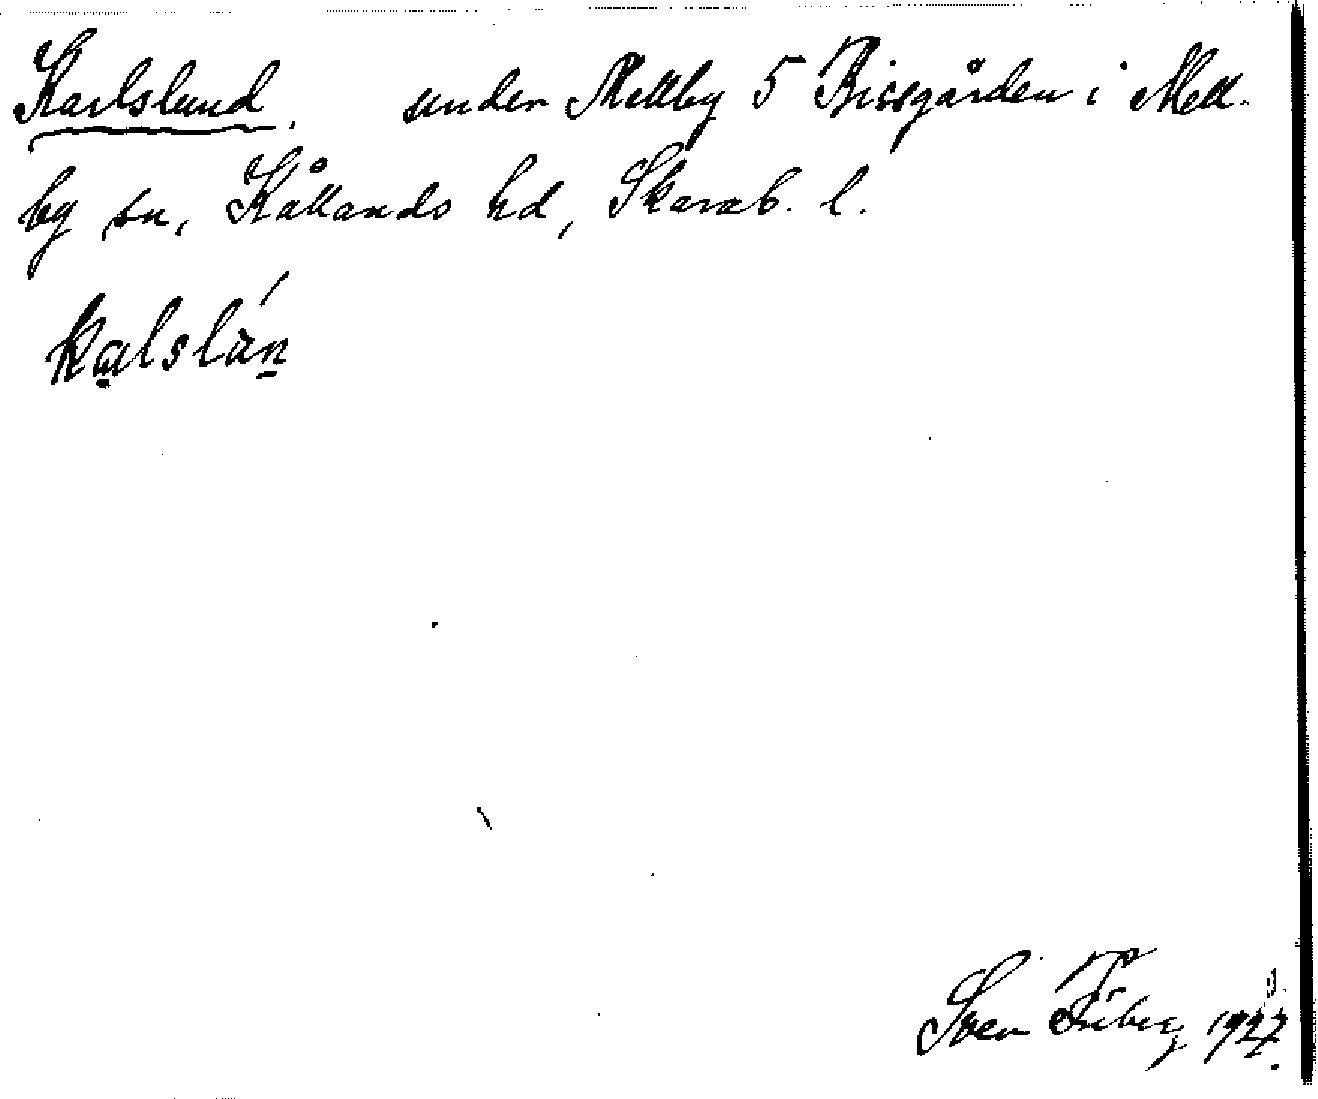 Karlslund. under Mellby 5 Bissgården i Mell-
by sn, Kållands hd, Skarab. l.
kalslán
Sven Friberg 1927.